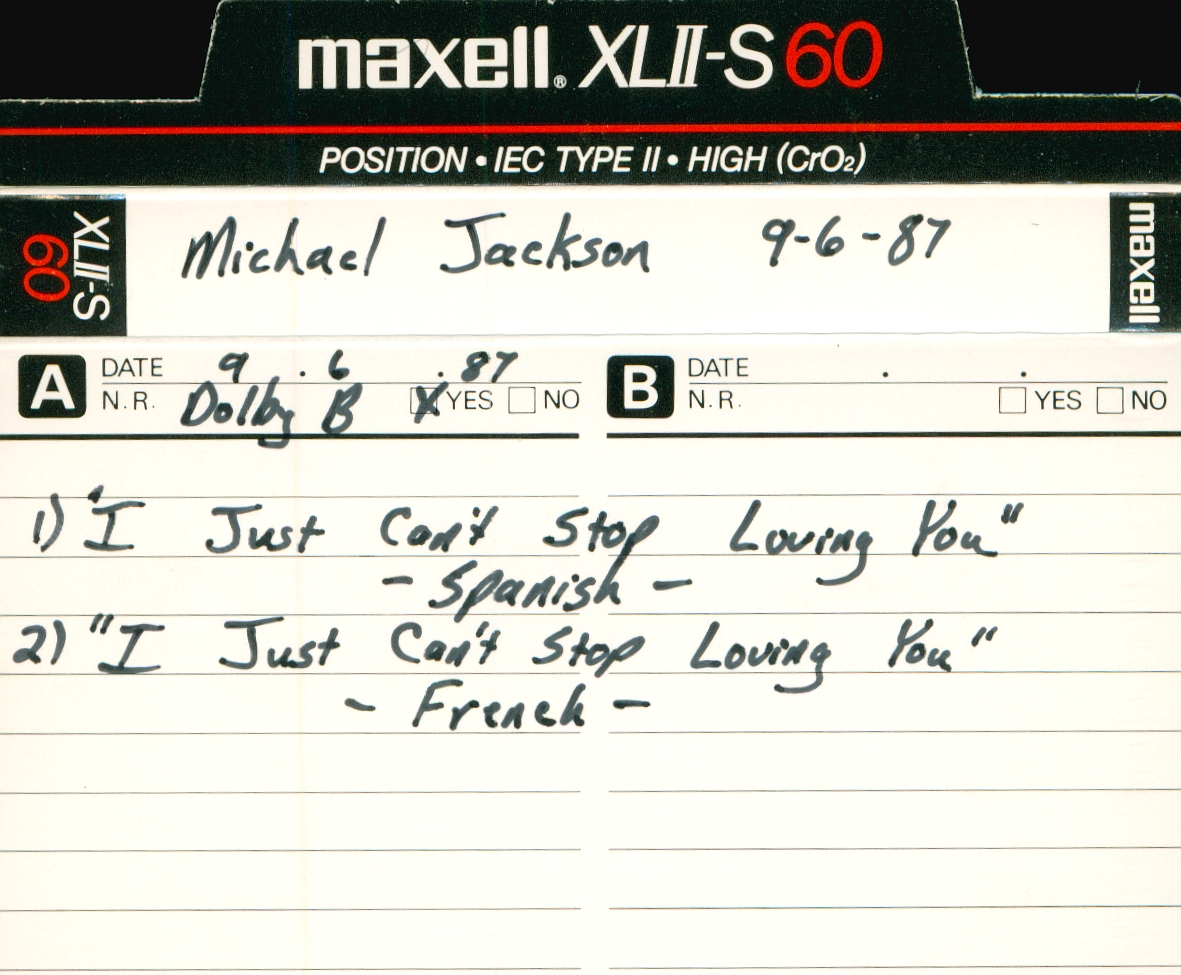 maxell® XLII-S 60
POSITION • IEC TYPE II • HIGH (CrO₂)
XLII-S 60
Michael Jackson 9-6-87
maxell
A DATE 9 . 6 . 87
N.R. Dolby B X YES NO
B DATE . .
N.R. YES NO
1) "I Just Can't Stop Loving You"
- Spanish -
2) "I Just Can't Stop Loving You"
- French -